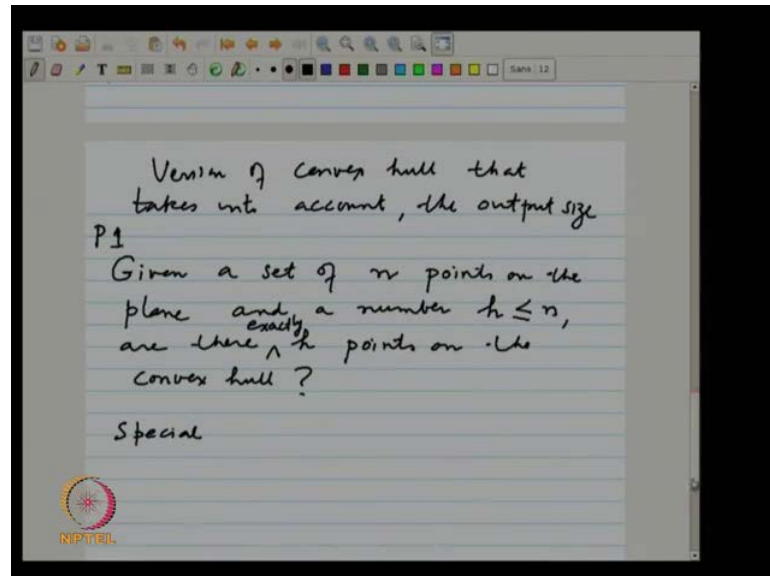 T
Sans 12
Version of convex hull that
takes into account, the output size
P1
Given a set of n points on the
plane and a number h ≤ n,
are there exactly h points on the
convex hull ?
Special
NPTEL